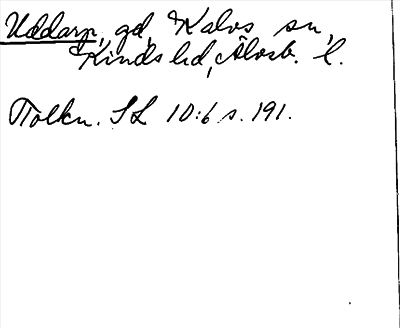 Uddarp, gd, Kalvs sn,
Kinds hd, Älvsb. l.
Tolkn. SL 10:6 s. 191.